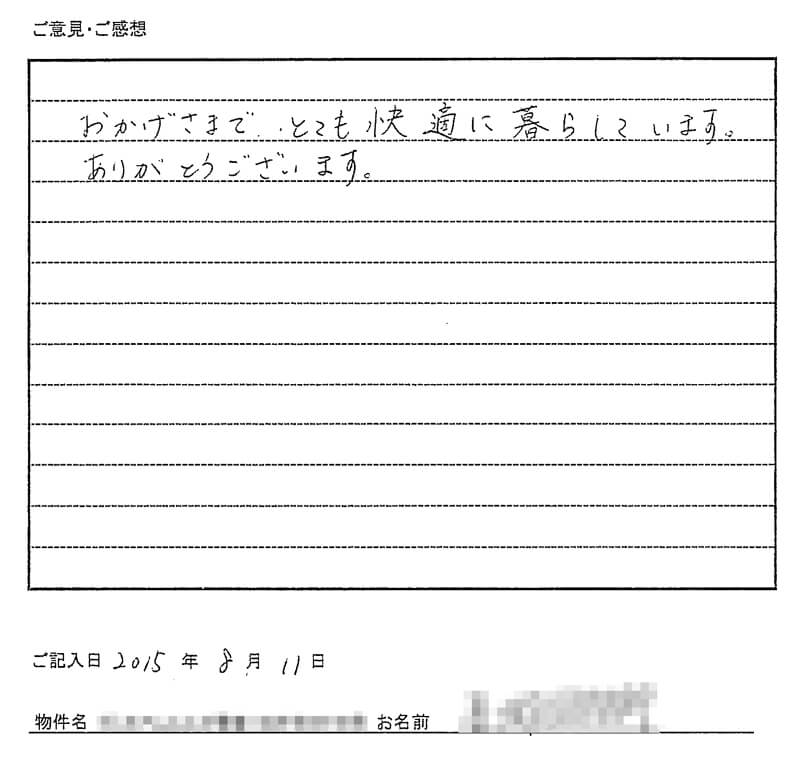 ご意見・ご感想
おかげさまで、とても快適に暮らしています。
ありがとうございます。
ご記入日 2015 年 8 月 11 日
物件名 お名前